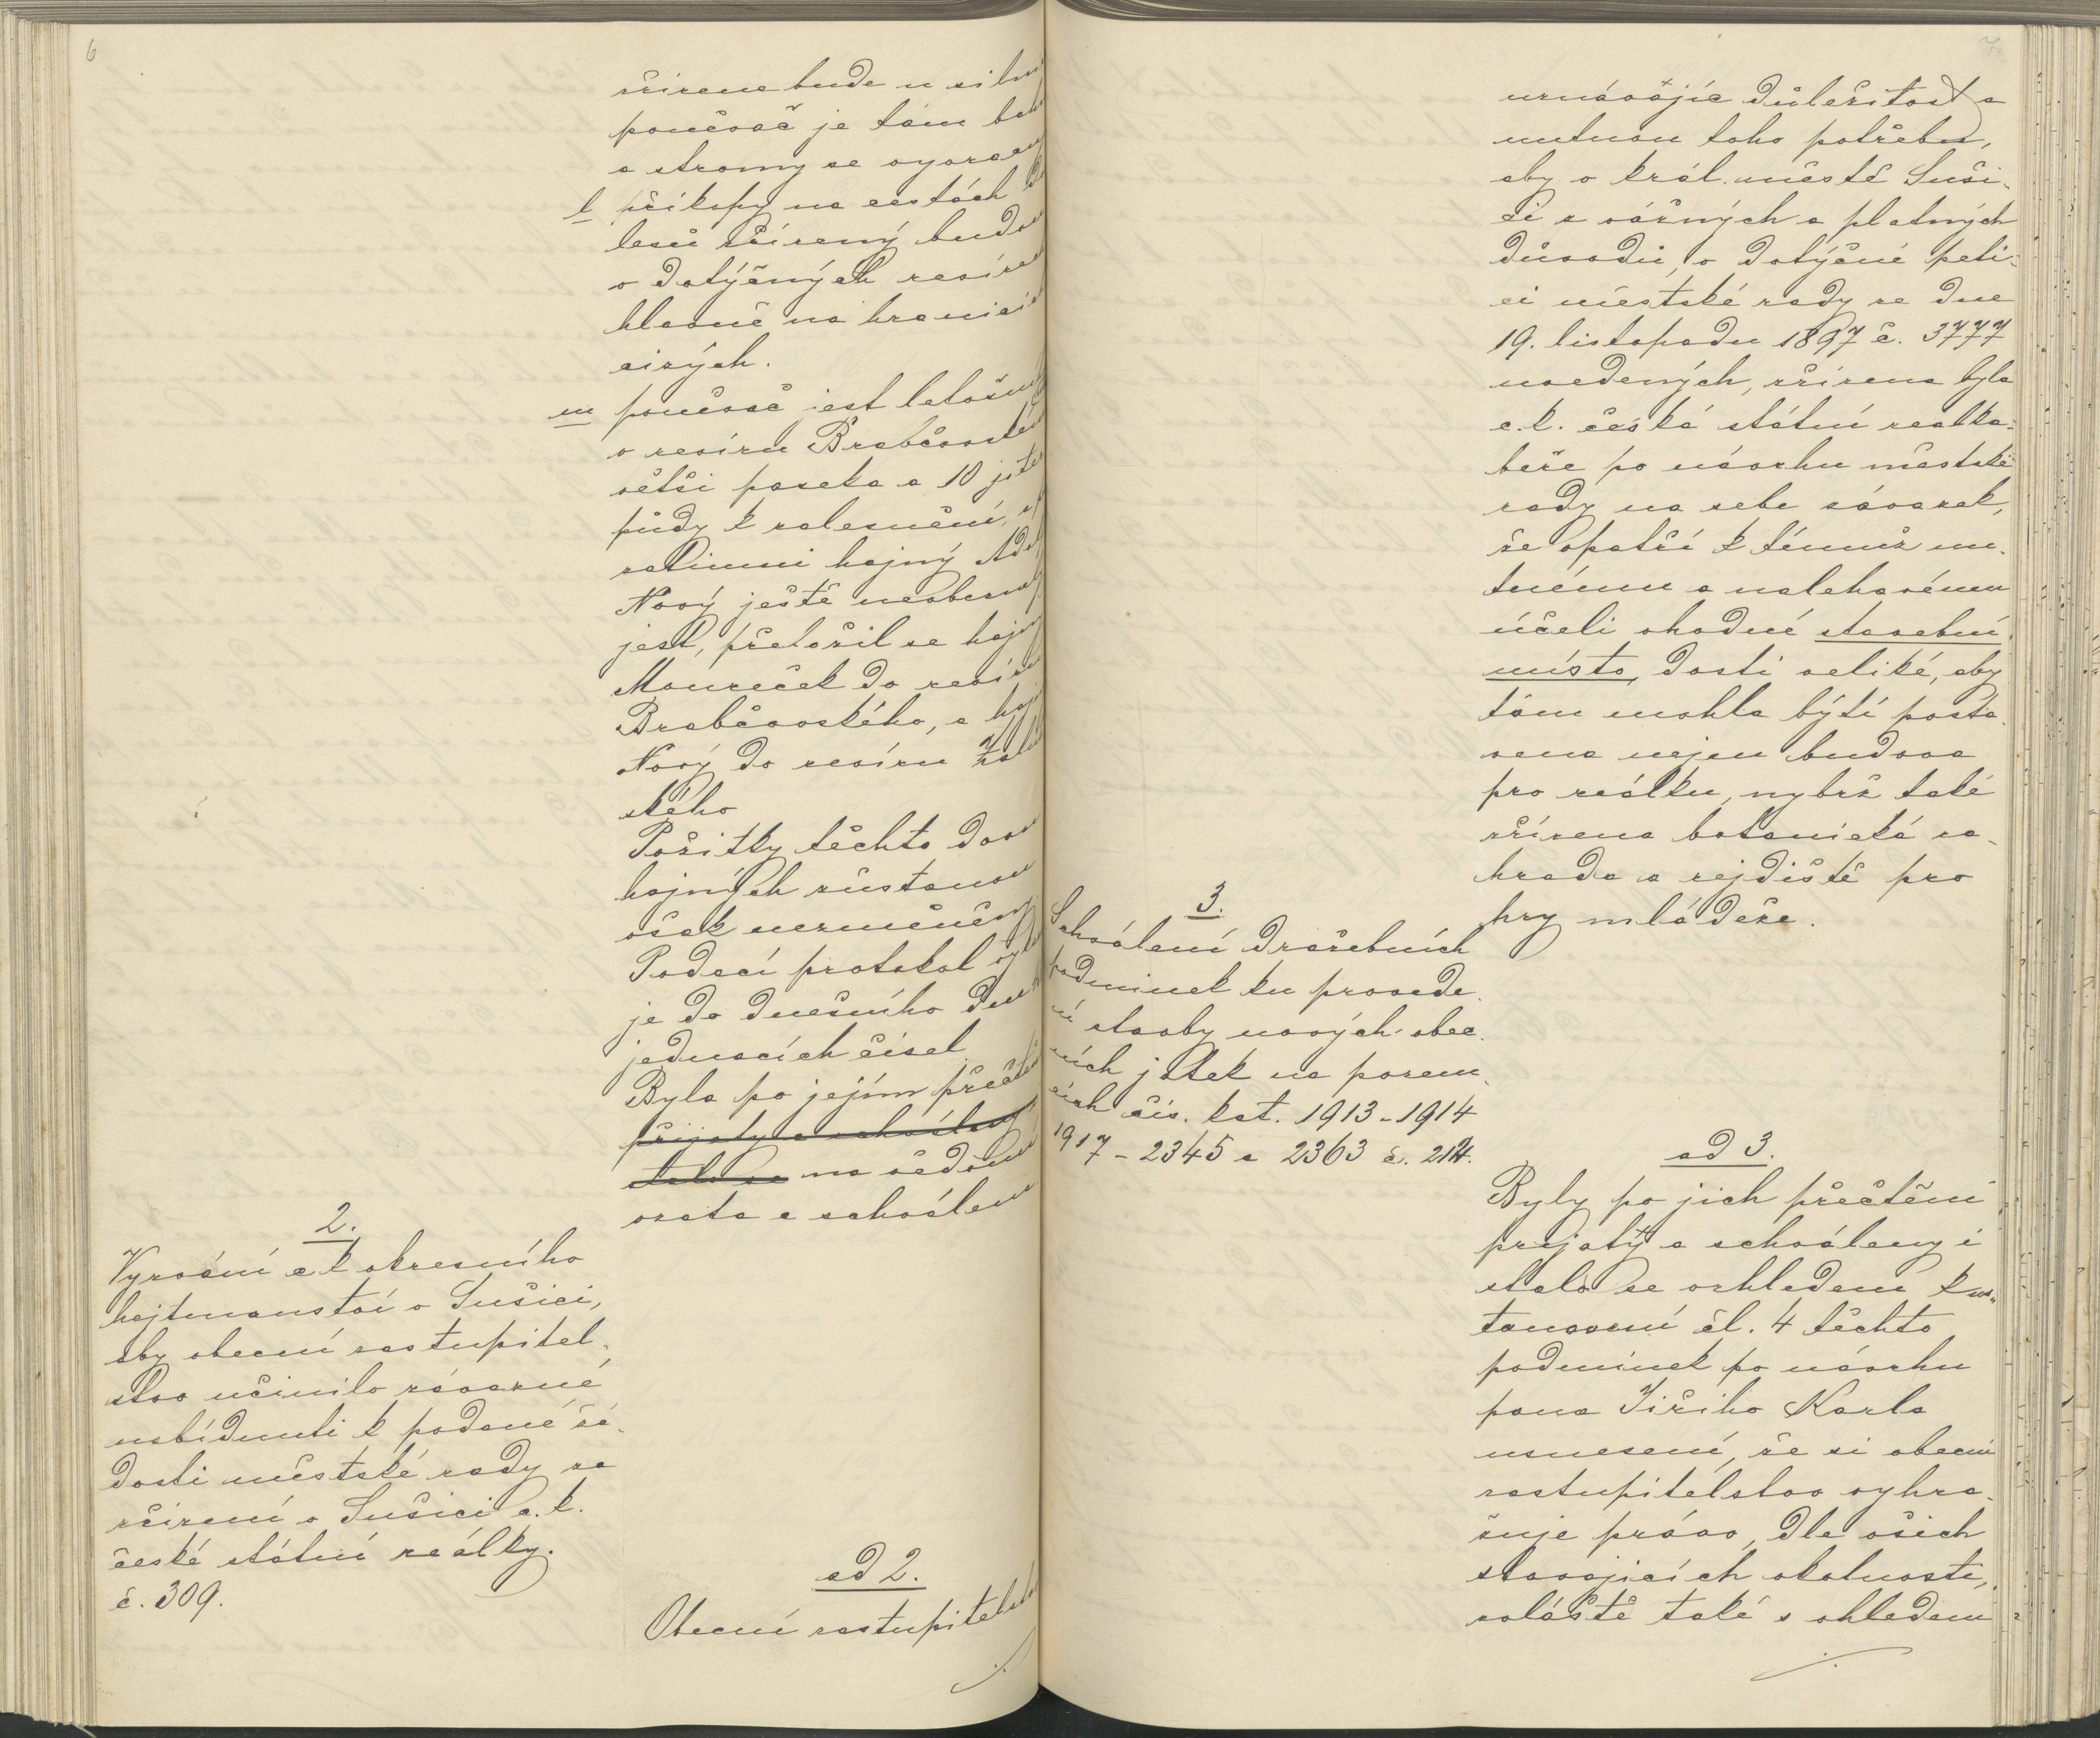 6
zřízeno bude u silni
poněvač je tám bah
a stromy se vyvracej
l příkopy na cestách
lesů zřízený budo
v dotýčných revíre
hlavně na hranicí
cizých.
m poněvač jest letošní
v revíru Brabčovském
větší paseka a 10 jit
půdy k zalesnění,
zatimni hajný Ade
Nový ještě neobezna
jest, přeložil se hajn
Moureček do reví
Brabčovského, a haj
Nový do revíru
ského
Požitky těchto dvou
hajných zůstanou
však nezměněny
Podací protokol
je do dnešního dne
jednacích čísel
Byla po jejím přečte
přijaty a schvále
stalo se na vědomí
vzata a schválena
2.
Vyzvání c k okresního
hejtmanství v Sušici,
aby obecní zastupitel-
stvo učinilo závazné
nabídnutí k podané žá-
dosti městské rady za
zřízení v Sušici c. k.
české státní reálky.
č. 309.
ad 2.
Obecní zastupitelstvo
./.
7
uznávajíc důležitost a
nutnou toho potřebu,
aby v král. městě Suši-
ci z vážných a platných
důvodů, v dotýčné peti-
ci městské rady ze dne
19. listopadu 1897 č. 3777
uvedených, zřízena byla
c. k. česká státní realka-
beře po návrhu městské
rady na sebe závazek,
že opatří k témuž nu-
tnému a nalehavému
účeli vhodné stavební
místo, dosti veliké, aby
tám mohla býti posta-
vena nejen budova
pro reálku, nybrž také
zřízena botanická za-
hrada a rejdiště pro
hry mládeže.
3.
Schválení dražebních
podminek ku provede-
ní stavby nových obec-
ních jatek na pozem-
cích čís. kat. 1913-1914
1917 - 2345 a 2363 č. 214.
ad 3.
Byly po jich přečtění
prijatý a schváleny i
stalo se vzhledem k us-
tanovení čl. 4 těchto
podmínek po návrhu
pana Jiřího Karla
usnesení, že si obecní
zastupitelstvo vyhra-
žuje právo, dle všech
stavajicích okolností,
zoláště také s ohledem
./.